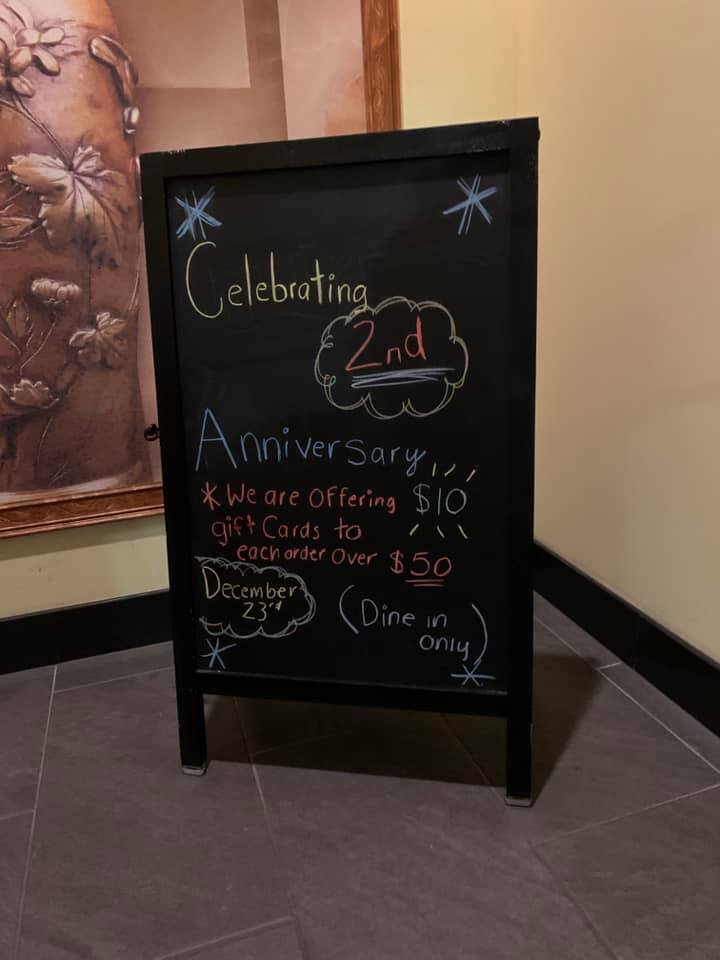 Celebrating
2nd
Anniversary
* We are offering $10
gift Cards to
each order over $50
December
23rd
(Dine in
only)